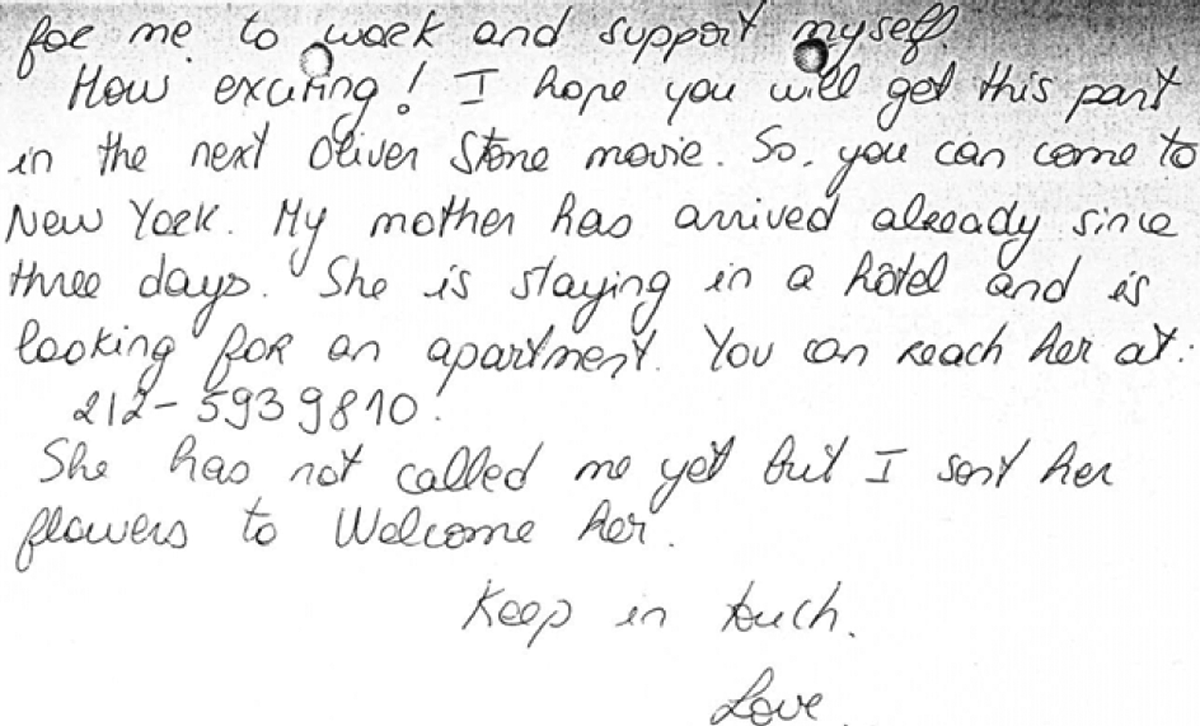 for me to work and support myself.
How exciting! I hope you will get this part
in the next Oliver Stone movie. So, you can come to
New York. My mother has arrived already since
three days. She is staying in a hôtel and is
looking for an apartment. You can reach her at:
212-5939810.
She has not called me yet but I sent her
flowers to Welcome her.
Keep in touch.
Love